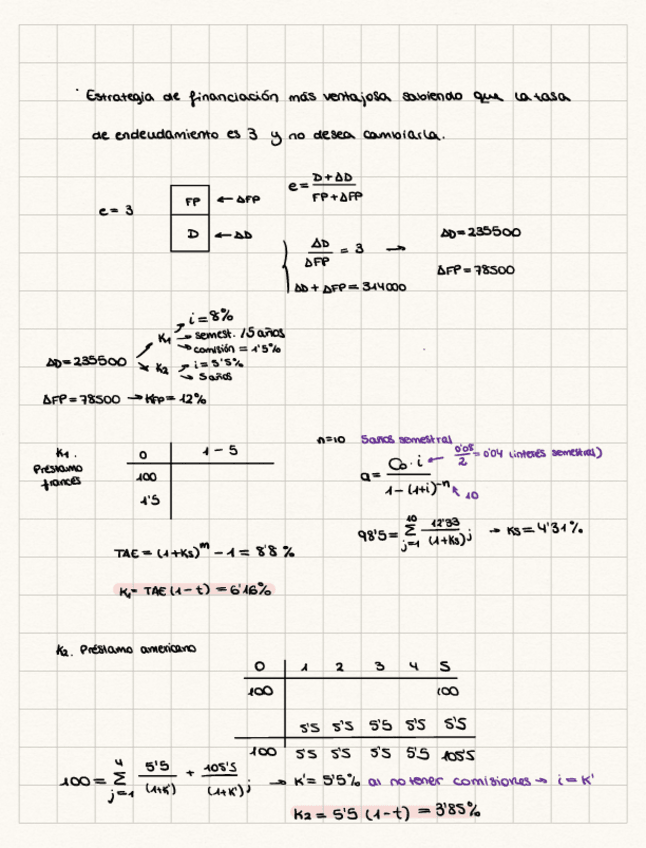 · Estrategia de financiación más ventajosa sabiendo que la tasa
de endeudamiento es 3 y no desea cambiarla.
e = 3
FP ← ΔFP
D ← ΔD
e = (D + ΔD) / (FP + ΔFP)
{ ΔD / ΔFP = 3 → ΔD = 235500
ΔD + ΔFP = 314000 ΔFP = 78500
ΔD = 235500
K1 → i = 8%
→ semest. / 5 años
→ comisión = 1'5%
K2 → i = 5'5%
→ 5 años
ΔFP = 78500 → KFP = 12%
K1. Préstamo francés
0 | 1 - 5
100
1'5
n = 10 5 años semestral
a = C0 · i / (1 - (1+i)^-n)
← 0'08/2 = 0'04 (interés semestral)
↖ 10
98'5 = 10 Σ j=1 12'33 / (1+Ks)^j → Ks = 4'31%
TAE = (1+Ks)^m - 1 = 8'8 %
K1 = TAE (1 - t) = 6'16%
K2. Préstamo americano
0 | 1 2 3 4 5
100 | 100
5'5 5'5 5'5 5'5 5'5
100 | 5'5 5'5 5'5 5'5 105'5
100 = 4 Σ j=1 5'5 / (1+K') + 105'5 / (1+K')^j → K' = 5'5% al no tener comisiones → i = K'
K2 = 5'5 (1 - t) = 3'85%